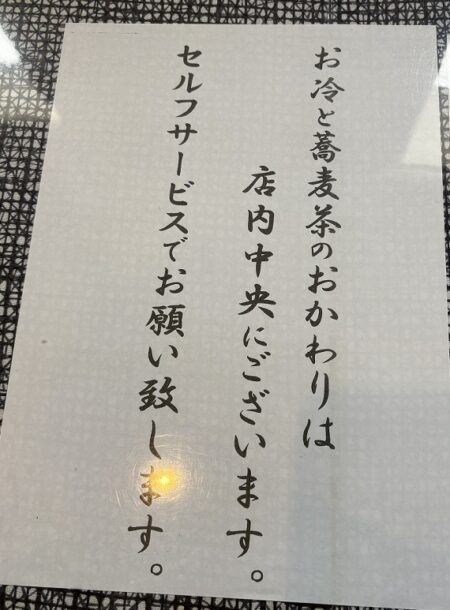 お冷と蕎麦茶のおかわりは
店内中央にございます。
セルフサービスでお願い致します。